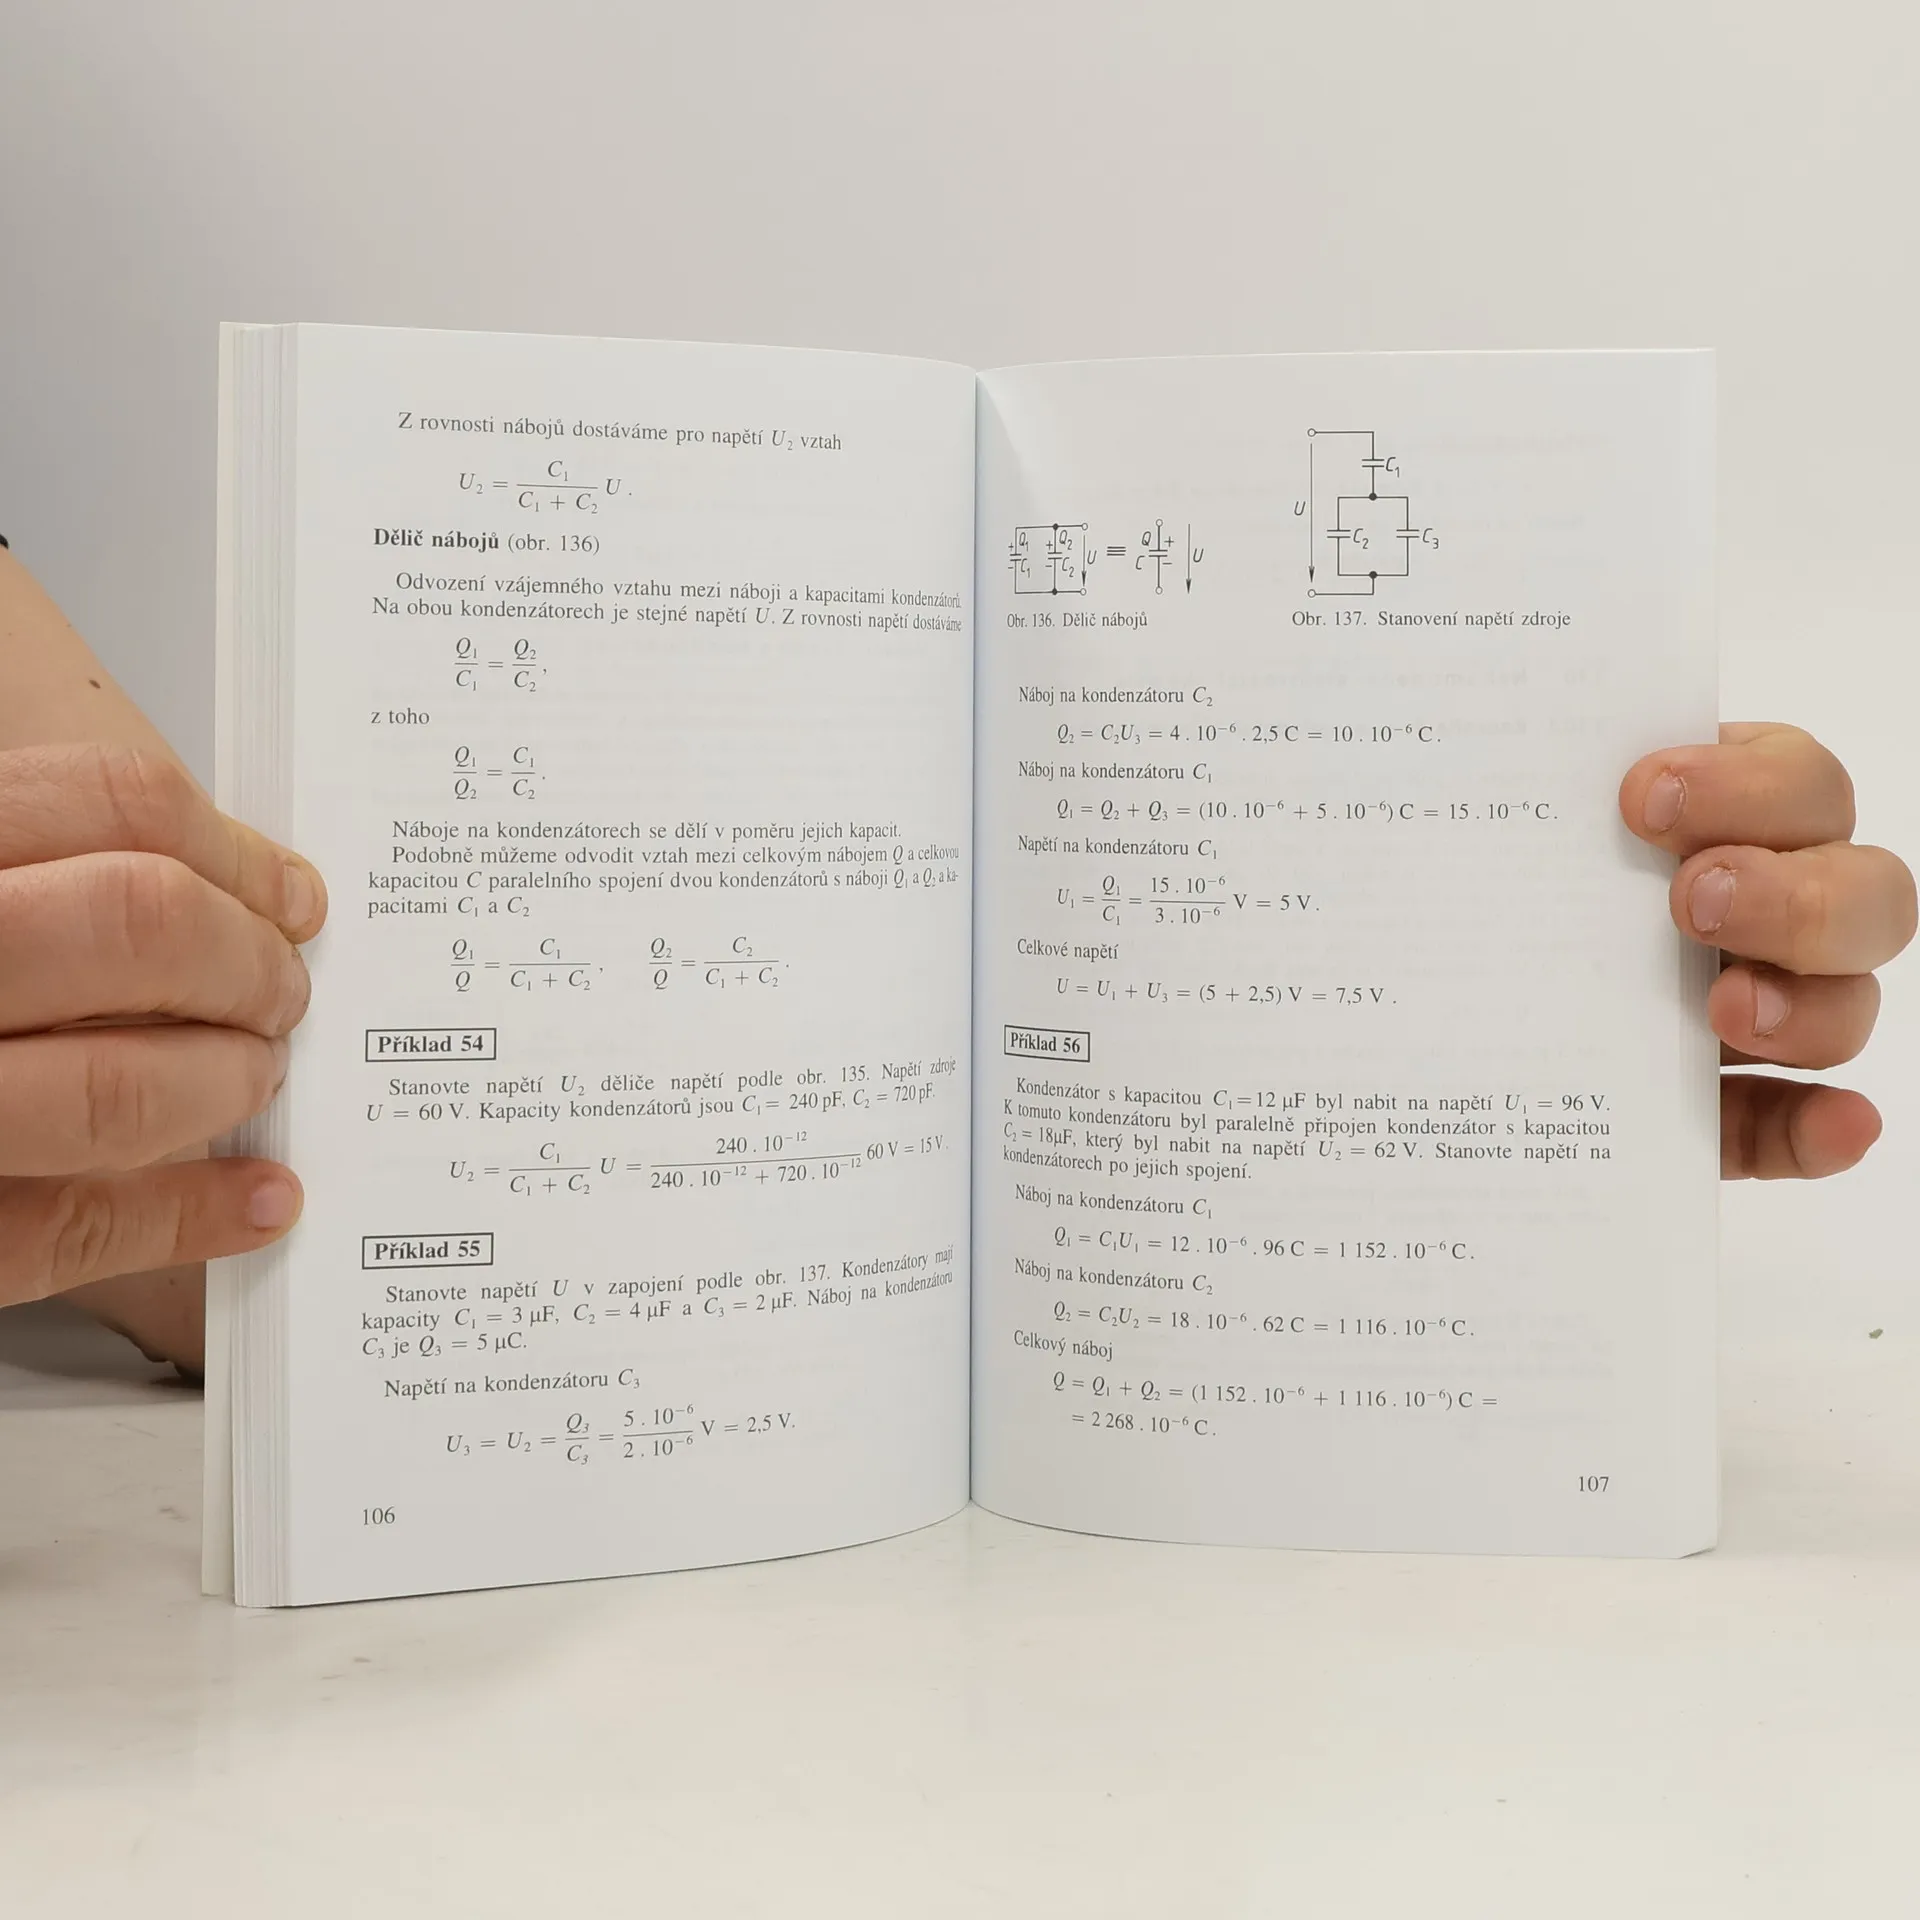 Z rovnosti nábojů dostáváme pro napětí U₂ vztah
U₂ = C₁ / (C₁ + C₂) U .
Dělič nábojů (obr. 136)
Odvození vzájemného vztahu mezi náboji a kapacitami kondenzátorů.
Na obou kondenzátorech je stejné napětí U. Z rovnosti napětí dostáváme
Q₁ / C₁ = Q₂ / C₂ ,
z toho
Q₁ / Q₂ = C₁ / C₂ .
Náboje na kondenzátorech se dělí v poměru jejich kapacit.
Podobně můžeme odvodit vztah mezi celkovým nábojem Q a celkovou
kapacitou C paralelního spojení dvou kondenzátorů s náboji Q₁ a Q₂ a ka-
pacitami C₁ a C₂
Q₁ / Q = C₁ / (C₁ + C₂) , Q₂ / Q = C₂ / (C₁ + C₂) .
Příklad 54
Stanovte napětí U₂ děliče napětí podle obr. 135. Napětí zdroje
U = 60 V. Kapacity kondenzátorů jsou C₁ = 240 pF, C₂ = 720 pF.
U₂ = C₁ / (C₁ + C₂) U = 240 . 10⁻¹² / (240 . 10⁻¹² + 720 . 10⁻¹²) 60 V = 15 V.
Příklad 55
Stanovte napětí U v zapojení podle obr. 137. Kondenzátory mají
kapacity C₁ = 3 μF, C₂ = 4 μF a C₃ = 2 μF. Náboj na kondenzátoru
C₃ je Q₃ = 5 μC.
Napětí na kondenzátoru C₃
U₃ = U₂ = Q₃ / C₃ = 5 . 10⁻⁶ / 2 . 10⁻⁶ V = 2,5 V.
106
+ Q₁ − C₁ + Q₂ − C₂ U ≡ Q + C − U
Obr. 136. Dělič nábojů
U C₁ C₂ C₃
Obr. 137. Stanovení napětí zdroje
Náboj na kondenzátoru C₂
Q₂ = C₂U₃ = 4 . 10⁻⁶ . 2,5 C = 10 . 10⁻⁶ C .
Náboj na kondenzátoru C₁
Q₁ = Q₂ + Q₃ = (10 . 10⁻⁶ + 5 . 10⁻⁶) C = 15 . 10⁻⁶ C .
Napětí na kondenzátoru C₁
U₁ = Q₁ / C₁ = 15 . 10⁻⁶ / 3 . 10⁻⁶ V = 5 V .
Celkové napětí
U = U₁ + U₃ = (5 + 2,5) V = 7,5 V .
Příklad 56
Kondenzátor s kapacitou C₁ = 12 μF byl nabit na napětí U₁ = 96 V.
K tomuto kondenzátoru byl paralelně připojen kondenzátor s kapacitou
C₂ = 18μF, který byl nabit na napětí U₂ = 62 V. Stanovte napětí na
kondenzátorech po jejich spojení.
Náboj na kondenzátoru C₁
Q₁ = C₁U₁ = 12 . 10⁻⁶ . 96 C = 1 152 . 10⁻⁶ C .
Náboj na kondenzátoru C₂
Q₂ = C₂U₂ = 18 . 10⁻⁶ . 62 C = 1 116 . 10⁻⁶ C .
Celkový náboj
Q = Q₁ + Q₂ = (1 152 . 10⁻⁶ + 1 116 . 10⁻⁶) C =
= 2 268 . 10⁻⁶ C .
107